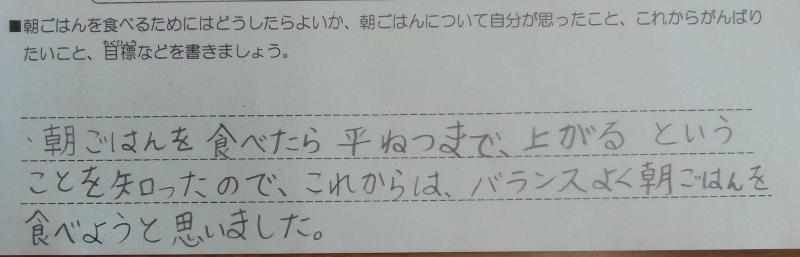 ■朝ごはんを食べるためにはどうしたらよいか、朝ごはんについて自分が思ったこと、これからがんばり
たいこと、目標などを書きましょう。
、朝ごはんを食べたら平ねつまで、上がるという
ことを知ったので、これからは、バランスよく朝ごはんを
食べようと思いました。